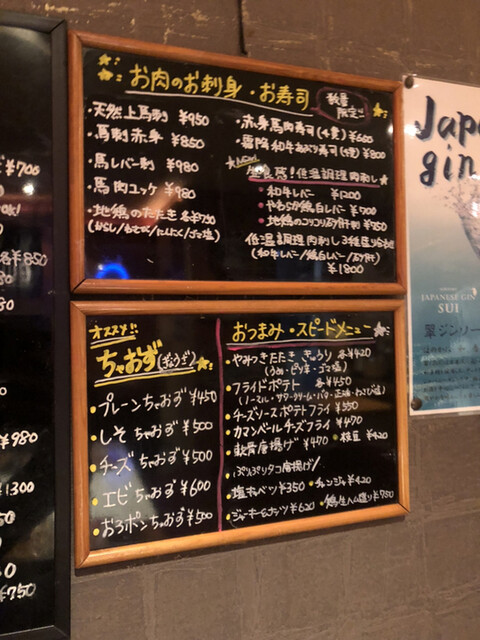 お肉のお刺身・お寿司
数量
限定!!
・天然上馬刺 ¥950
・馬刺赤身 ¥850
・馬レバー刺 ¥980
・馬肉ユッケ ¥980
・地鶏のたたき 各¥750
(からし/わさび/にんにく/ゴマ塩)
・赤身馬肉寿司(4貫) ¥600
・霜降和牛あぶり寿司(4貫) ¥800
低温調理 肉刺し
・和牛レバー ¥1200
・やわらか鶏白レバー ¥700
・地鶏のコリコリ砂肝刺 ¥750
低温調理肉刺し3種盛り合わせ
(和牛レバー/鶏白レバー/砂肝)
¥1800
オススメ!!
ちゃおず(ぎょうざ)
・プレーンちゃおず ¥450
・しそちゃおず ¥500
・チーズちゃおず ¥500
・エビちゃおず ¥600
・おろポンちゃおず ¥500
おつまみ・スピードメニュー
・やみつきたたききゅうり 各¥420
(うめ・ピリ辛・ゴマ塩)
・フライドポテト 各¥450
(ノーマル・サワークリーム・バター・正油・わさび塩)
・チーズソースポテトフライ ¥550
・カマンベールチーズフライ ¥470
・軟骨唐揚げ ¥470 ・枝豆 ¥420
・ぷりぷりタコ唐揚げ
・塩キャベツ ¥350 ・チャンジャ ¥420
・ジャーキー&ナッツ ¥620 ・鶏生ハム盛り ¥750
¥700
各¥850
¥980
¥1300
¥750
Japa
gin
JAPANESE GIN
SUI
翠ジンソー